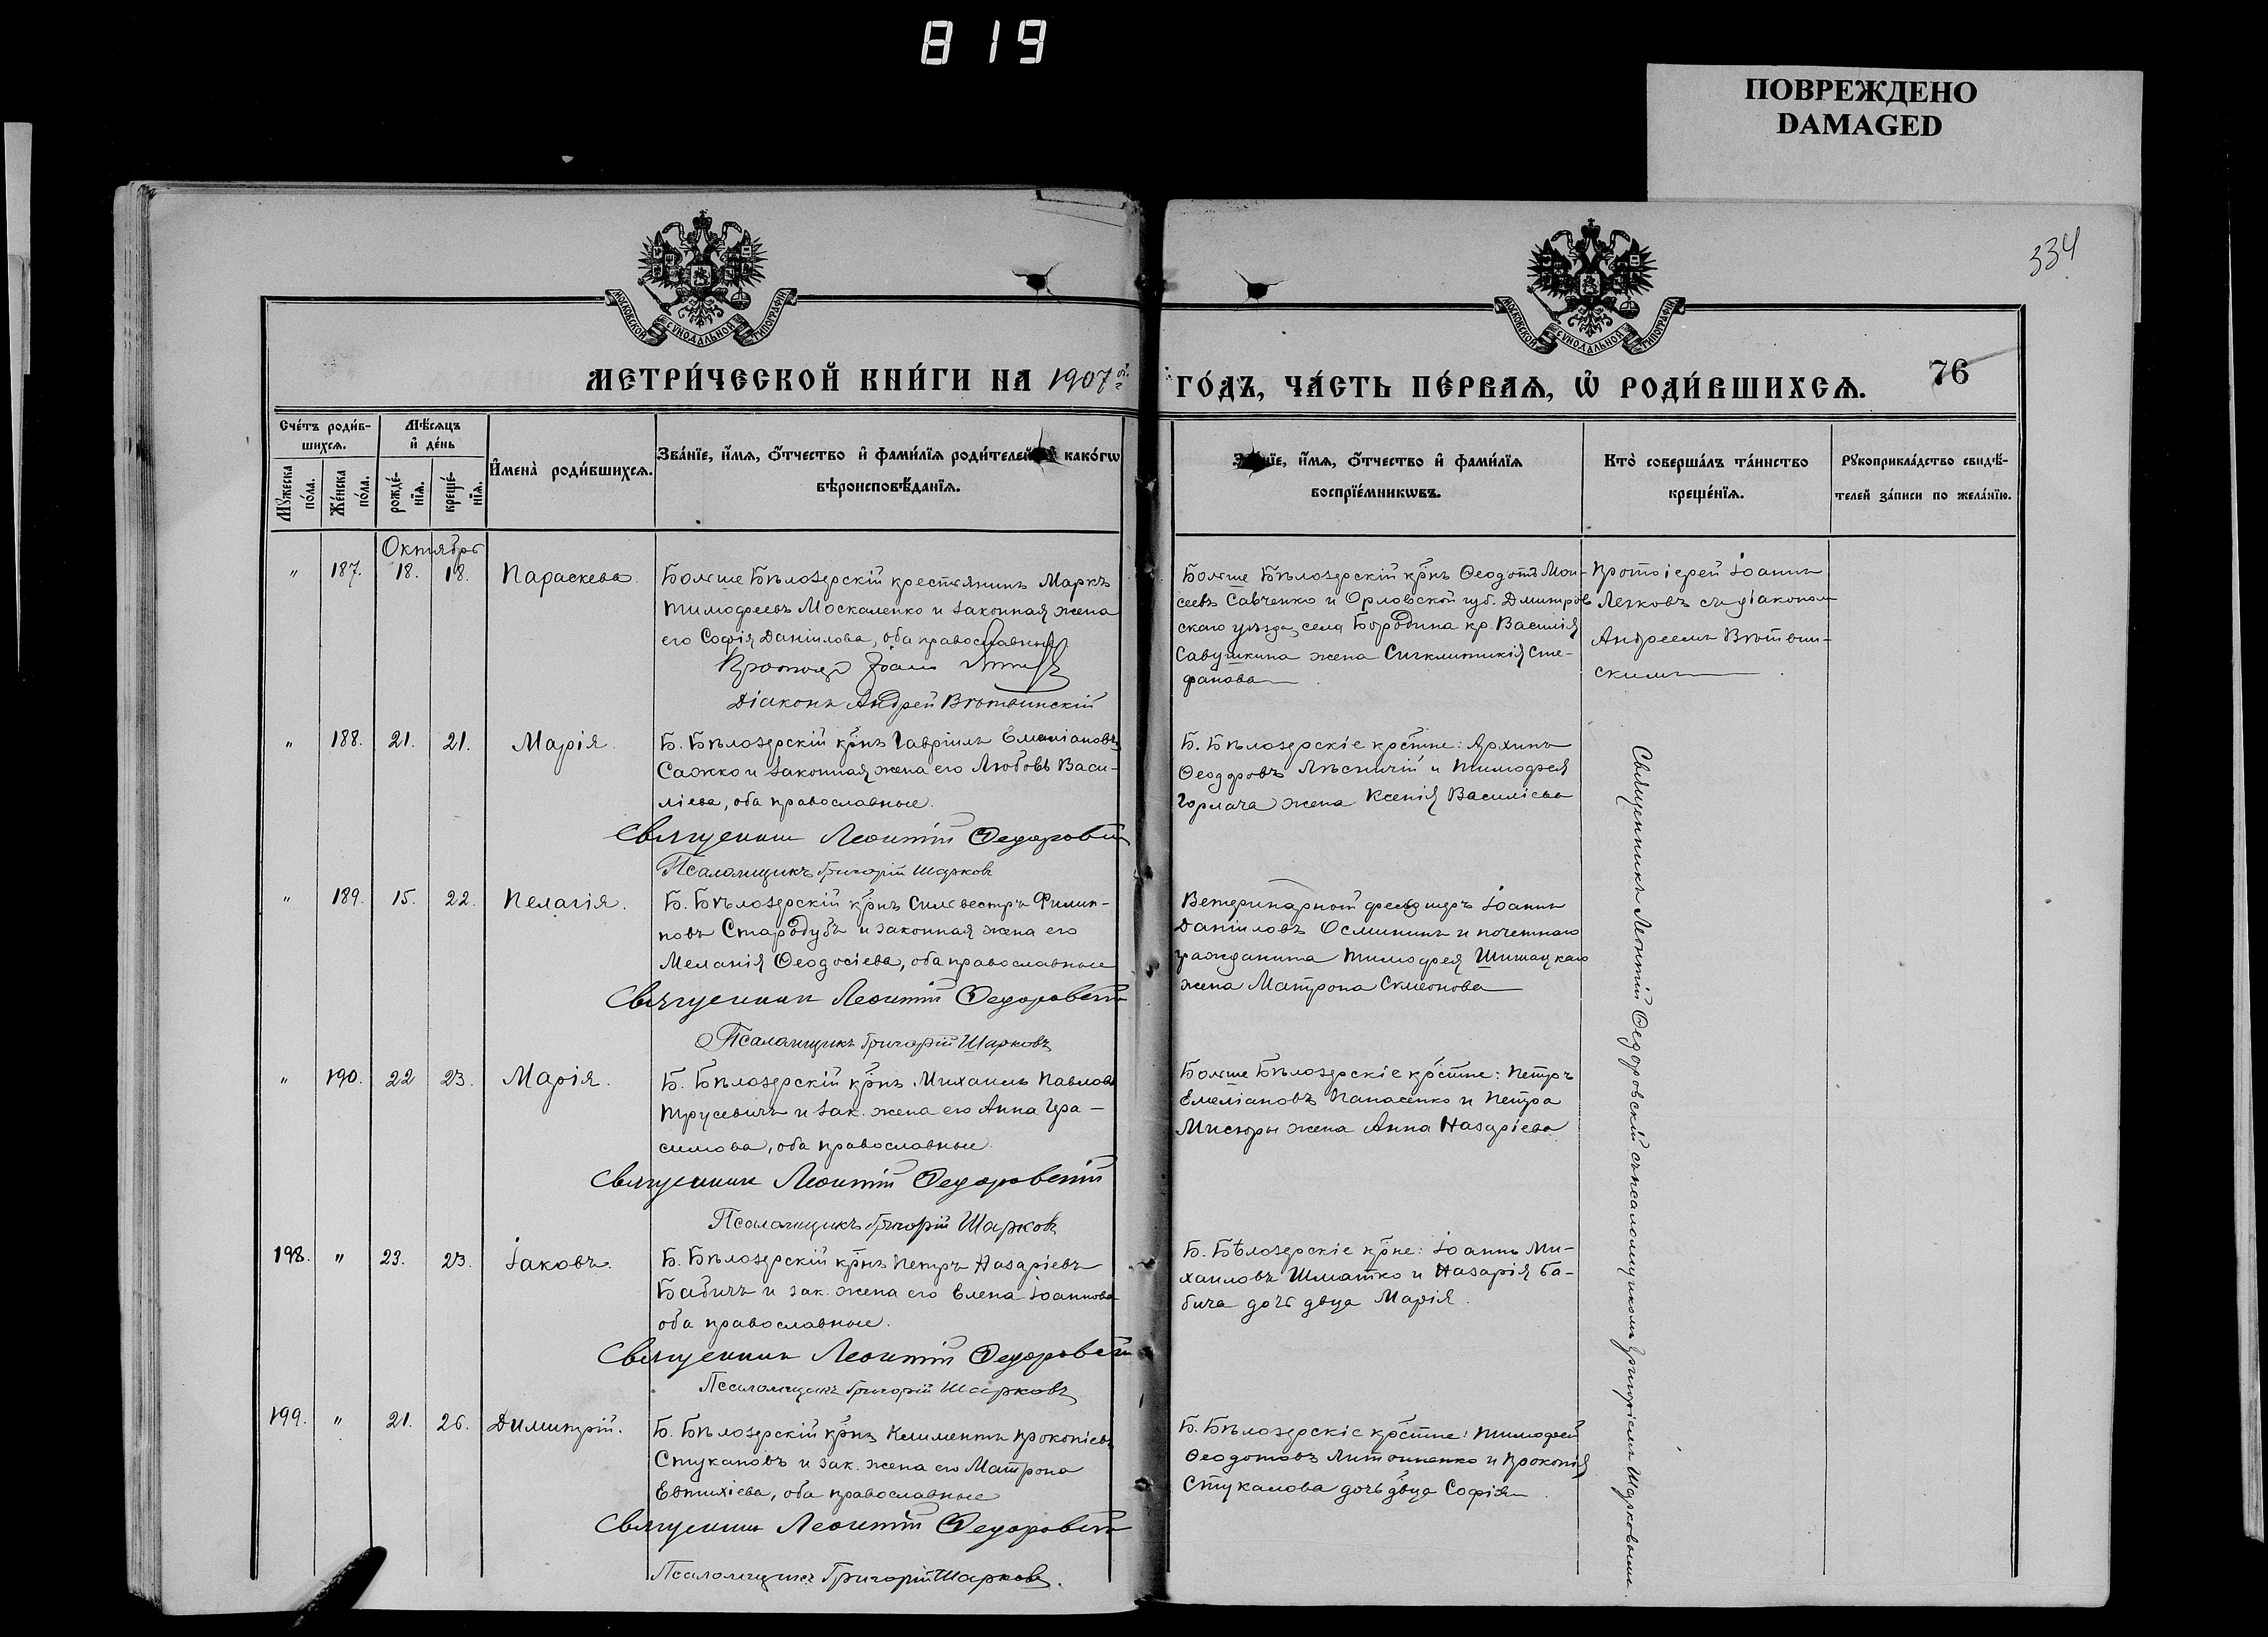 819
ПОВРЕЖДЕНО
DAMAGED
334
МОСКОВСКОЙ СУНОДАЛЬНОЙ ТИПОГРАФІИ
МОСКОВСКОЙ СУНОДАЛЬНОЙ ТИПОГРАФІИ
МЕТРИ́ЧЕСКОЙ КНИ́ГИ НА 1907
ГО́ДЪ, ЧА́СТЬ ПЕ́РВАѦ, Ѡ РОДИ́ВШИХСѦ.
76
Сче́тъ роди́в-
шихсѧ.
Мѣ́сѧцъ
и де́нь
Мꙋжеска
по́ла.
Же́нска
по́ла.
рожде́-
нїѧ.
креще́-
нїѧ.
Имена̀ роди́вшихсѧ.
Зва́нїе, и́мѧ, ѻ҆́тчество и фами́лїѧ роди́телей, и како́гѡ
вѣроисповѣ́данїѧ.
Зва́нїе, и́мѧ, ѻ҆́тчество и фами́лїѧ
воспрїе́мникѡвъ.
Кто̀ соверша́лъ та́инство
креще́нїѧ.
Рꙋкоприкла́дство свидѣ́-
телей за́писи по жела́нїю.
Октябрь
" 187. 18. 18. Параскева.
Больше Бѣлозерскій крестьянинъ Маркъ
Тимофеевъ Москаленко и законная жена
его Софія Даніилова, оба православные
Діаконъ Андрей Вѣтвинскій
Больше Бѣлозерскій кр̃нъ Ѳеодотъ Мои-
сеевъ Савченко и Орловской губ. Дмитров
скаго уѣзда, села Бородина кр. Василія
Савушкина жена Синклитикія Сте-
фанова
Протоіерей Іоаннъ
Легковъ съ діакономъ
Андреемъ Вѣтвин-
скимъ
" 188. 21. 21. Марія.
Б. Бѣлозерскій кр̃нъ Гавріилъ Емеліановъ
Сажко и законная жена его Любовь Васи-
ліева, оба православные.
Священникъ Леонтій Федоровскій
Псаломщикъ Григорій Шарковъ
Б. Бѣлозерскіе крестне: Архипъ
Ѳеодоровъ Лѣсничій и Тимофея
Горлача жена Ксенія Василіева
Священникъ Леонтій Ѳедоровскій съ псаломщикомъ Григоріемъ Шарковымъ.
" 189. 15. 22. Пелагія.
Б. Бѣлозерскій кр̃нъ Сильвестръ Филип-
повъ Стародубъ и законная жена его
Меланія Ѳеодосіева, оба православные
Священникъ Леонтій Федоровскій
Псаломщикъ Григорій Шарковъ
Ветеринарный фельдшеръ Іоаннъ
Даніиловъ Осмининъ и почетнаго
гражданина Тимофея Шишацкаго
жена Матрона Симеонова
" 190. 22 23. Марія.
Б. Бѣлозерскій кр̃нъ Михаилъ Павловъ
Трусевичъ и зак. жена его Анна Гера-
симова, оба православные.
Священникъ Леонтій Федоровскій
Псаломщикъ Григорій Шарковъ
Больше Бѣлозерскіе крестне: Петръ
Емеліановъ Панасенко и Петра
Мисюры жена Анна Назаріева
198. " 23. 23. Іаковъ.
Б. Бѣлозерскій кр̃нъ Петръ Назаріевъ
Бабичъ и зак. жена его Елена Іоаннова
оба православные.
Священникъ Леонтій Федоровскій
Псаломщикъ Григорій Шарковъ
Б. Бѣлозерскіе кр̃не: Іоаннъ Ми-
хаиловъ Шматко и Назарія Ба-
бича дочь двца Марія.
199. " 21. 26. Димитрій.
Б. Бѣлозерскій кр̃нъ Климентъ Прокопіевъ
Стукановъ и зак. жена его Матрона
Евтихіева, оба православные
Священникъ Леонтій Федоровскій
Псаломщикъ Григорій Шарковъ.
Б. Бѣлозерскіе крестне: Тимофей
Ѳеодотовъ Литвиненко и Прокопія
Стуканова дочь двца Софія